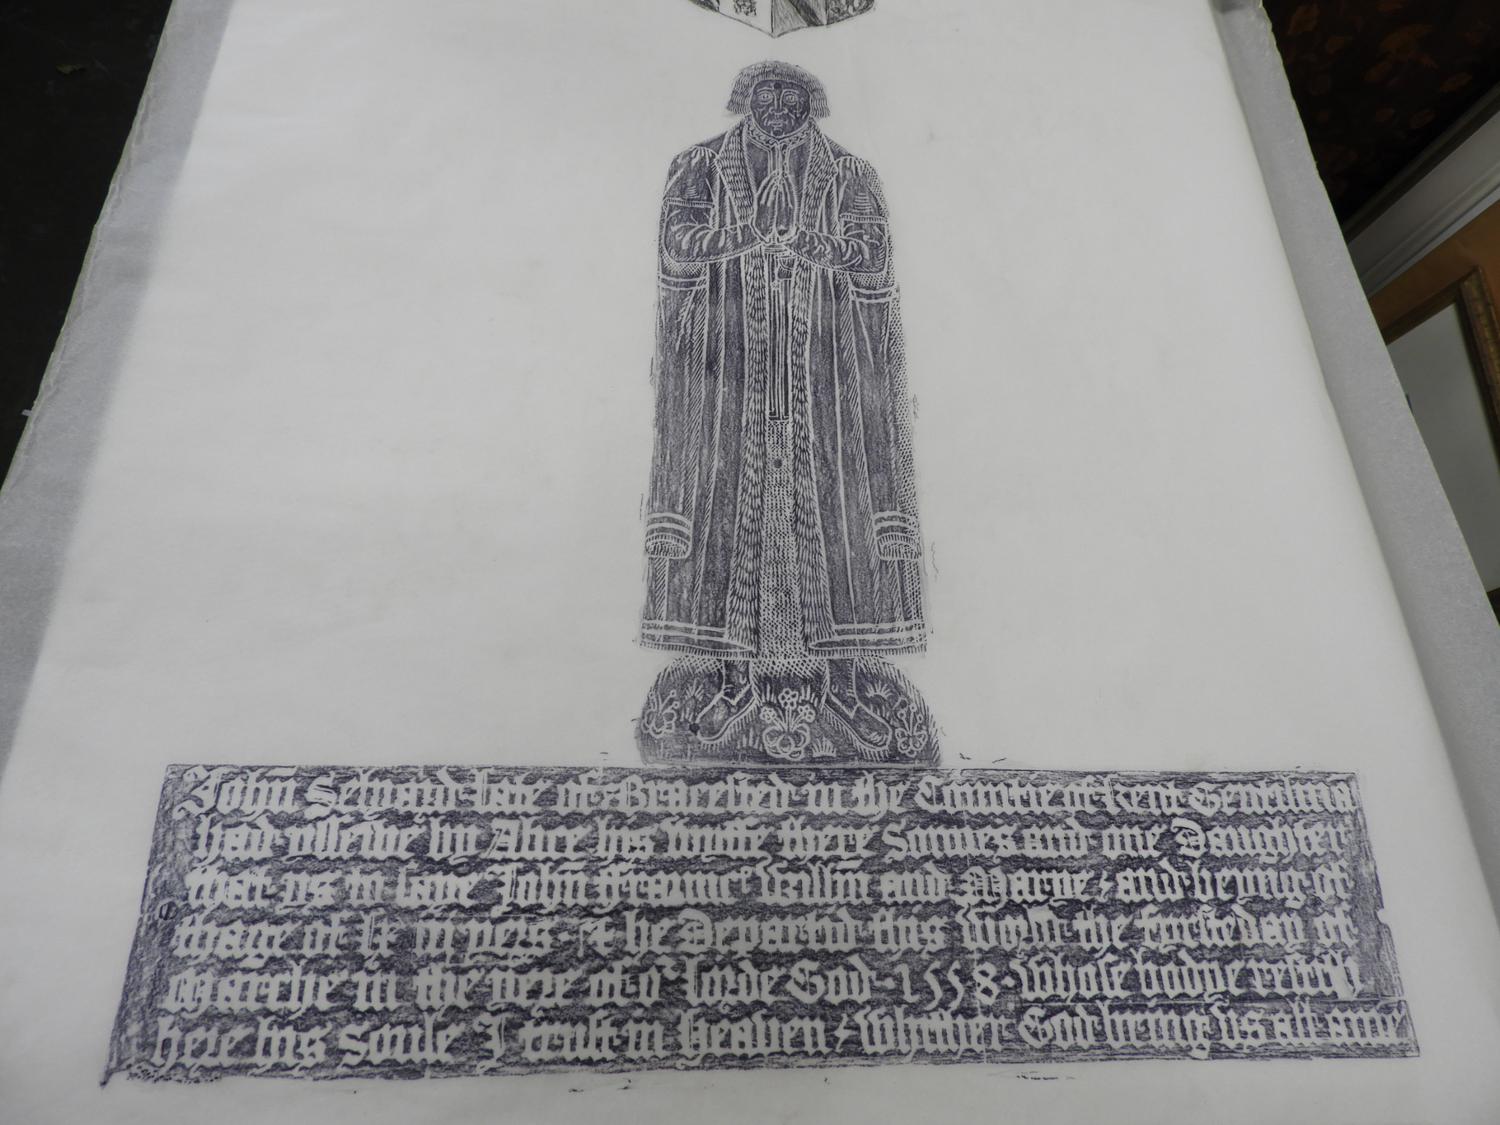 John Selward late of Bracested in the Countie of Kent Gentilma
had yssewe by Alice his wyffe there Sonnes and one Daughter
that ys to saye John ffraunc̃ Willm̃ and Marye & and beinge of
thage of lx yeris & he Departid this Worlde the fyrste day of
Marche in the yere of oʳ Lorde God 1558 whose bodye restith
here his Soule I trust in heaven & Whether God bring us all ame